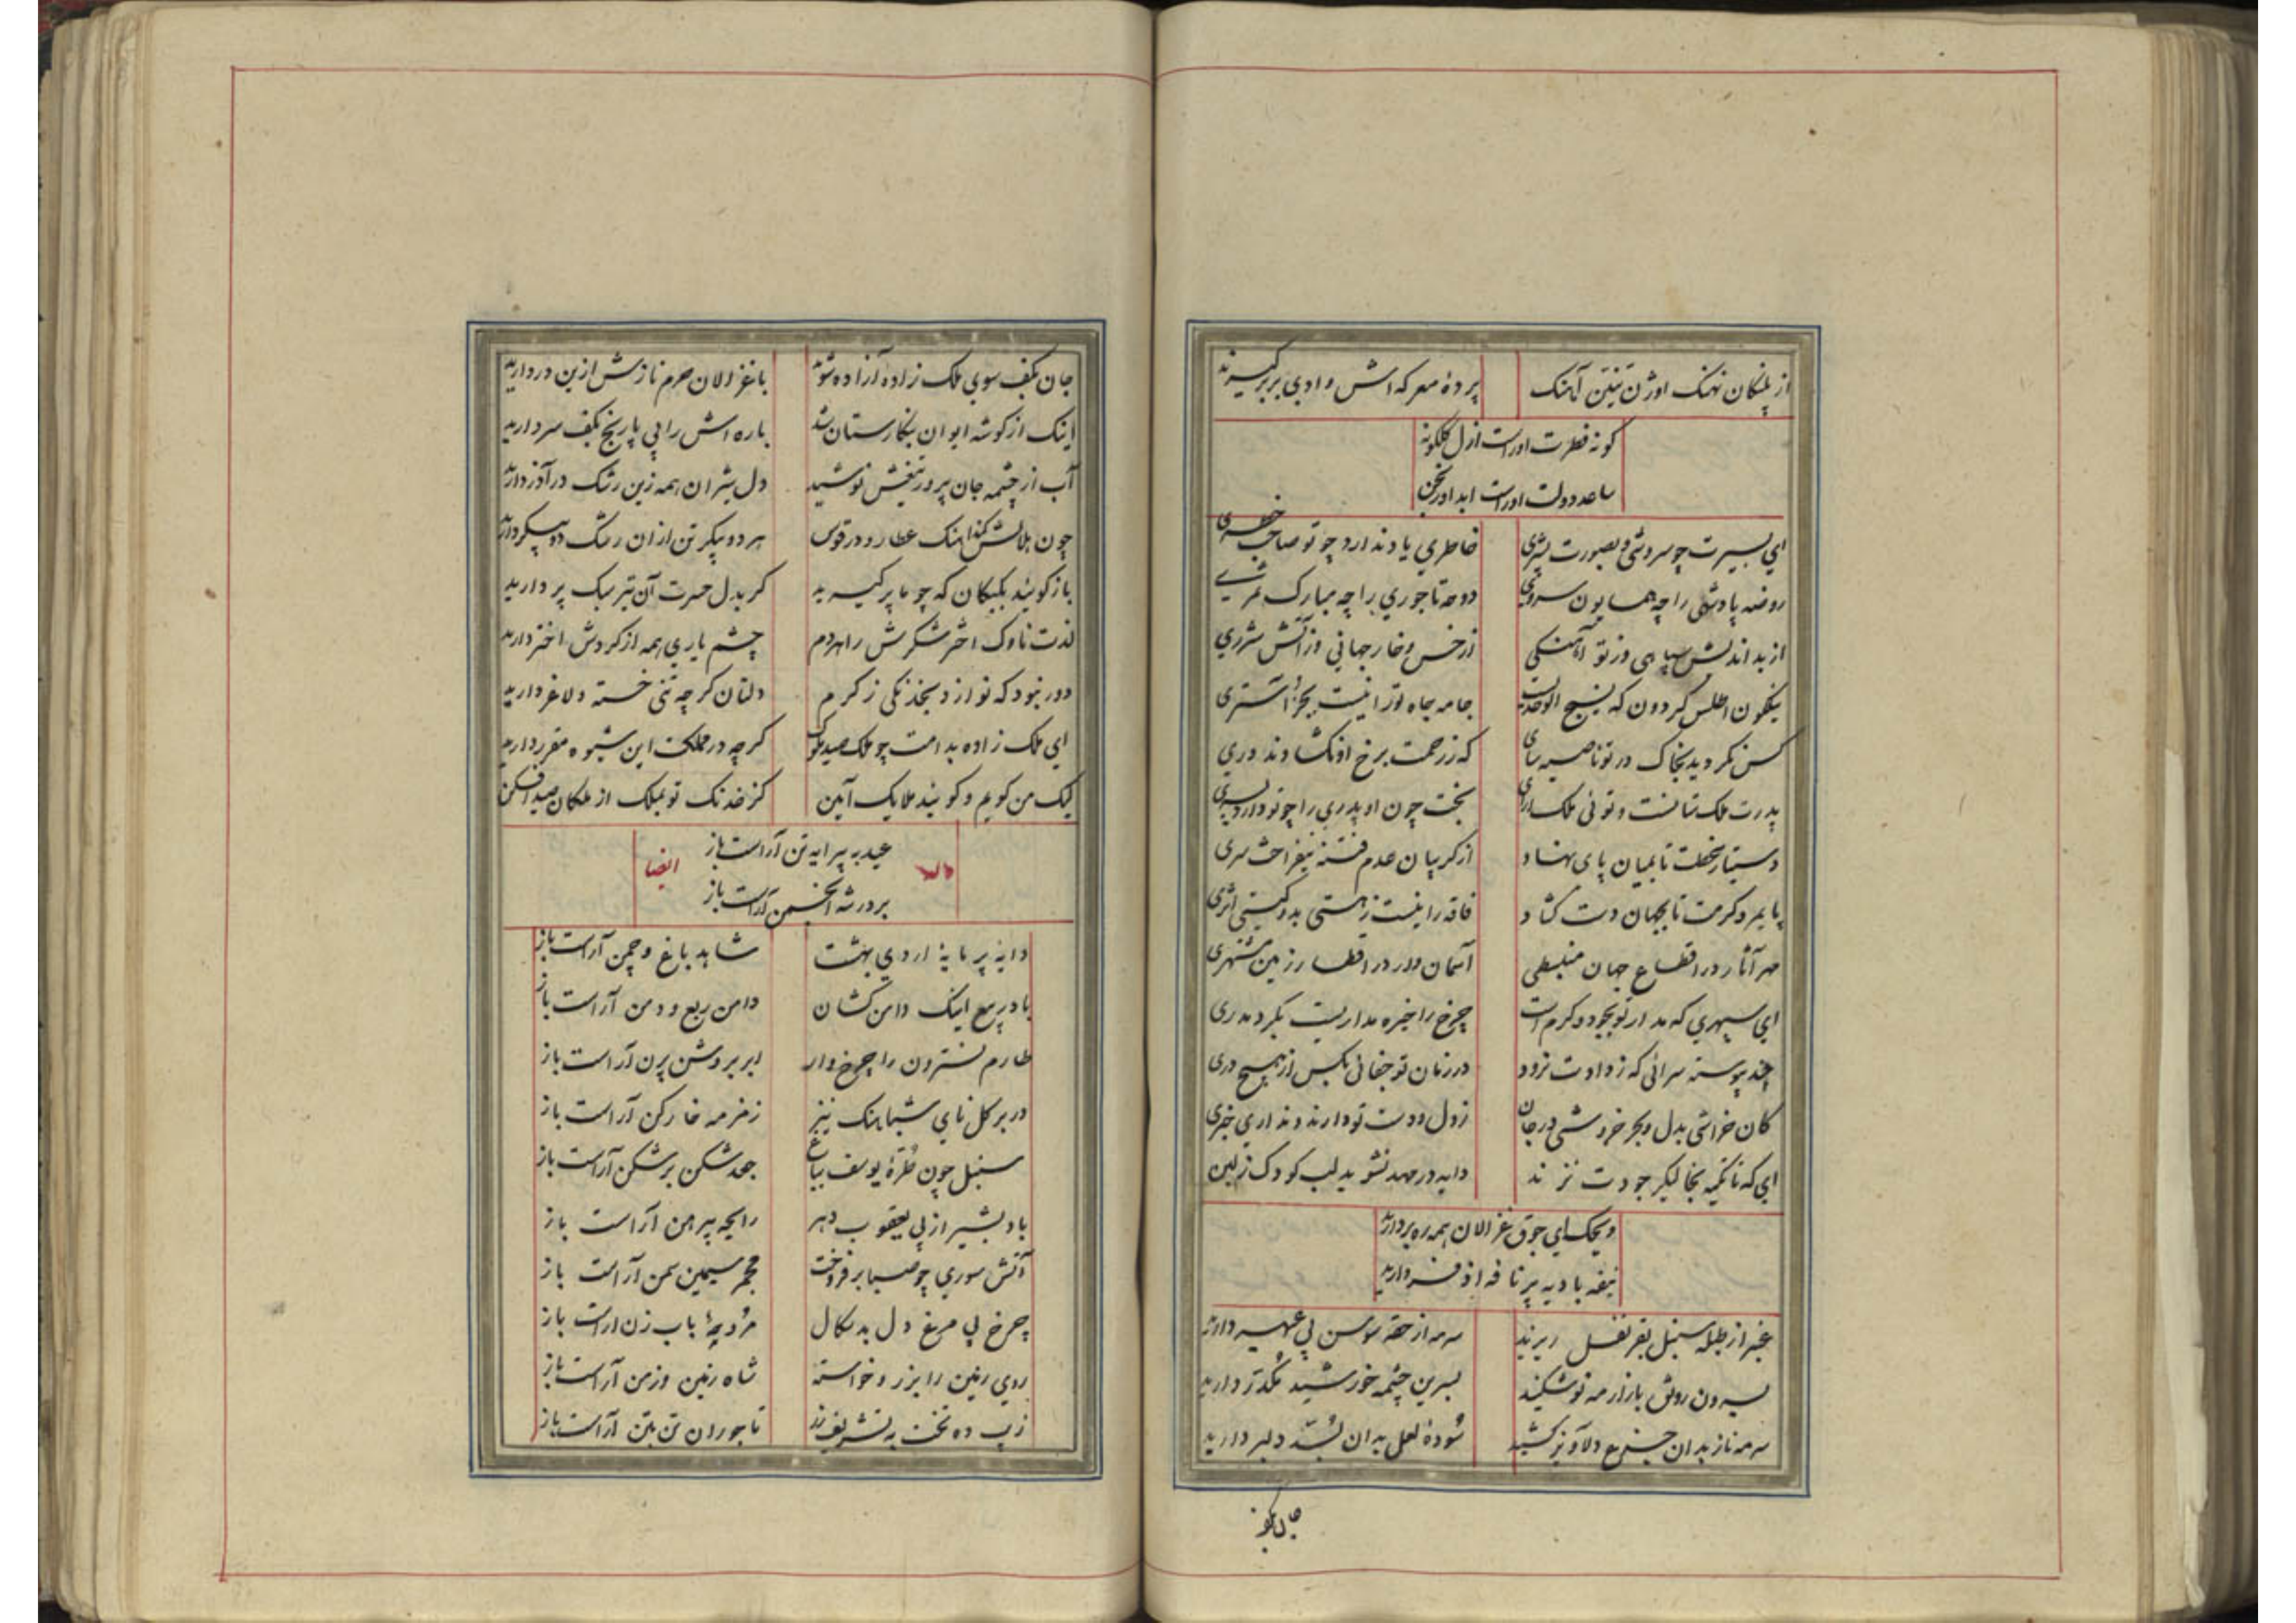 از پلنگان نهنگ اوژن تنین آهنگ پردهٔ معرکه اش وادی بربر گیرند
گونه فطرت اوراست ازل گلگونه
ساعد دولت اوراست ابد اورنجن
ای بسیرت چو سروشی و بصورت بشری خاطری یاد ندارد چو تو صاحب خطری
روضه پادشهی را چه همایون سروی دوحه تاجوری را چه مبارک ثمری
از بداندیش سپاهی وز تو آهنگی از خس و خار جهانی وز آتش شرری
نیلگون اطلس گردون که نسیج جامه جاه تو را نیست بجز آستری
کس نگردید بخاک در تو ناصیه سای که ز رحمت برخ او نگشادند دری
پدرت ملک ستانست و توئی ملک آرای بخت چون او پدری را چو تو دارد پسری
تا بمیان پای نهاد از گریبان عدم فتنه نیفراخت سری
پایمرد کرمت تا بجهان دست گشاد فاقه را نیست ز هستی بدو گیتی اثری
مهر آثار در اقطاع جهان منبسطی آسمان وار در اقطار زمین مشتهری
ای سپهری که مدار تو بجود و کرم است چرخ را خیره مداریست بگرد مدری
چند پیوسته سرائی که ز دادت نرود در زمان تو جفائی بکس از هیچ دری
کان خراشی بدل و بحر خروشی در جان ز دل و دست تو دارند و نداری خبری
ای که تا تکیه بخالیگر جودت نزند دایه در مهد نشوید لب کودک ز لبن
ویحک ای جوق غزالان همه ره بردارید
نیفه بادیه پر نافه اذفر دارید
عنبر از طبله سنبل بقرنفل ریزید سرمه از حقه سوسن پی عبهر دارید
بیرون رونق بازار مه نو شکنید چشمه خورشید مکدر دارید
سرمه ناز بدان جزع دلاویز کشید سوده لعل بدان بسد دلبر دارید
جان بکف
جان بکف سوی ملک زاده آزاده شوید با غزالان حرم نازش ازین در دارید
اینک از گوشه ایوان بنگارستان شد باره اش را پی پا رنج بکف سر دارید
آب از چشمه جان پرور تیغش نوشید دل شیران همه زین رشک در آذر دارید
چون هلالش کند آهنگ عطارد در قوس هر دو پیکر تن از آن رشک دو پیکر دارید
باز گوئید بکبکان که چو ما پر گیرید گر بدل حسرت آن تیر سبک پر دارید
لذت ناوک اختر شکرش را هر دم چشم یاری همه از گردش اختر دارید
دور نبود که نوازد بخدنگی ز کرم دلتان گرچه تنی خسته و لاغر دارید
ای ملک زاده بدامت چو ملک صید ملوک گرچه در مملکت این شیوه مقرر دارید
لیک من گویم و گویند ملایک آمین کز خدنگ تو بملک از ملکان صید افکن
وله عید به پیرایه تن آراست باز ایضا
بر در شه انجمن آراست باز
دایه پر مایه اردی بهشت شاهد باغ و چمن آراست باز
باد ربیع اینک دامن کشان دامن ربع و دمن آراست باز
طارم نسترون را چرخ وار ابر بروشن پرن آراست باز
در بر گل نای شباهنگ نیز زمزمه خارکن آراست باز
سنبل چون طرهٔ یوسف بباغ جعد شکن بر شکن آراست باز
باد بشیر از پی یعقوب دهر رایحه پیرهن آراست باز
آتش سوری چو صبا بر فروخت مجمر سیمین سمن آراست باز
چرخ پی مرغ دل بدسگال باب زن آراست باز
روی زمین را بزر و خواسته شاه زمین و زمن آراست باز
زیب ده تخت به تشریف زر تاجوران تن بتن آراست باز